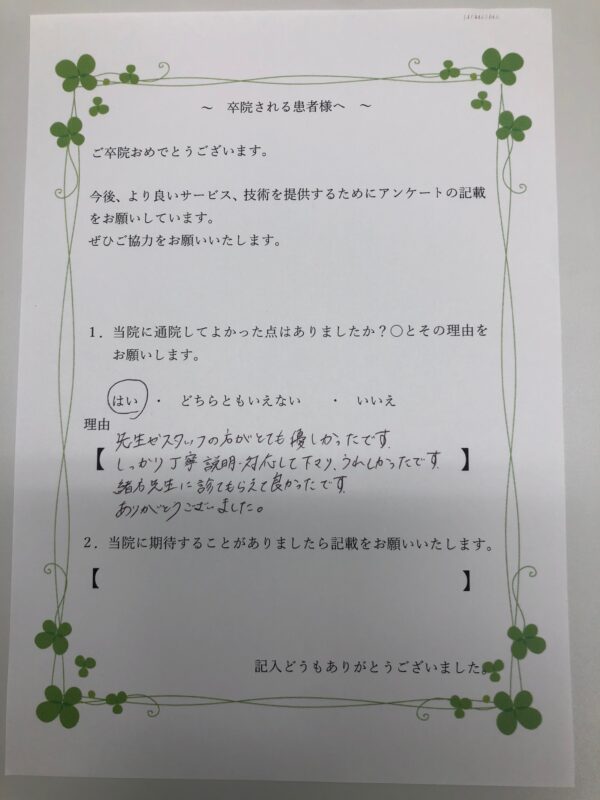 ～ 卒院される患者様へ ～
ご卒院おめでとうございます。
今後、より良いサービス、技術を提供するためにアンケートの記載
をお願いしています。
ぜひご協力をお願いいたします。
1．当院に通院してよかった点はありましたか？○とその理由を
お願いします。
はい ・ どちらともいえない ・ いいえ
理由
先生やスタッフの方がとても優しかったです。
【 しっかり丁寧に説明・対応して下さり、うれしかったです。 】
緒方先生に診てもらえて良かったです。
ありがとうございました。
2．当院に期待することがありましたら記載をお願いいたします。
【 】
記入どうもありがとうございました。